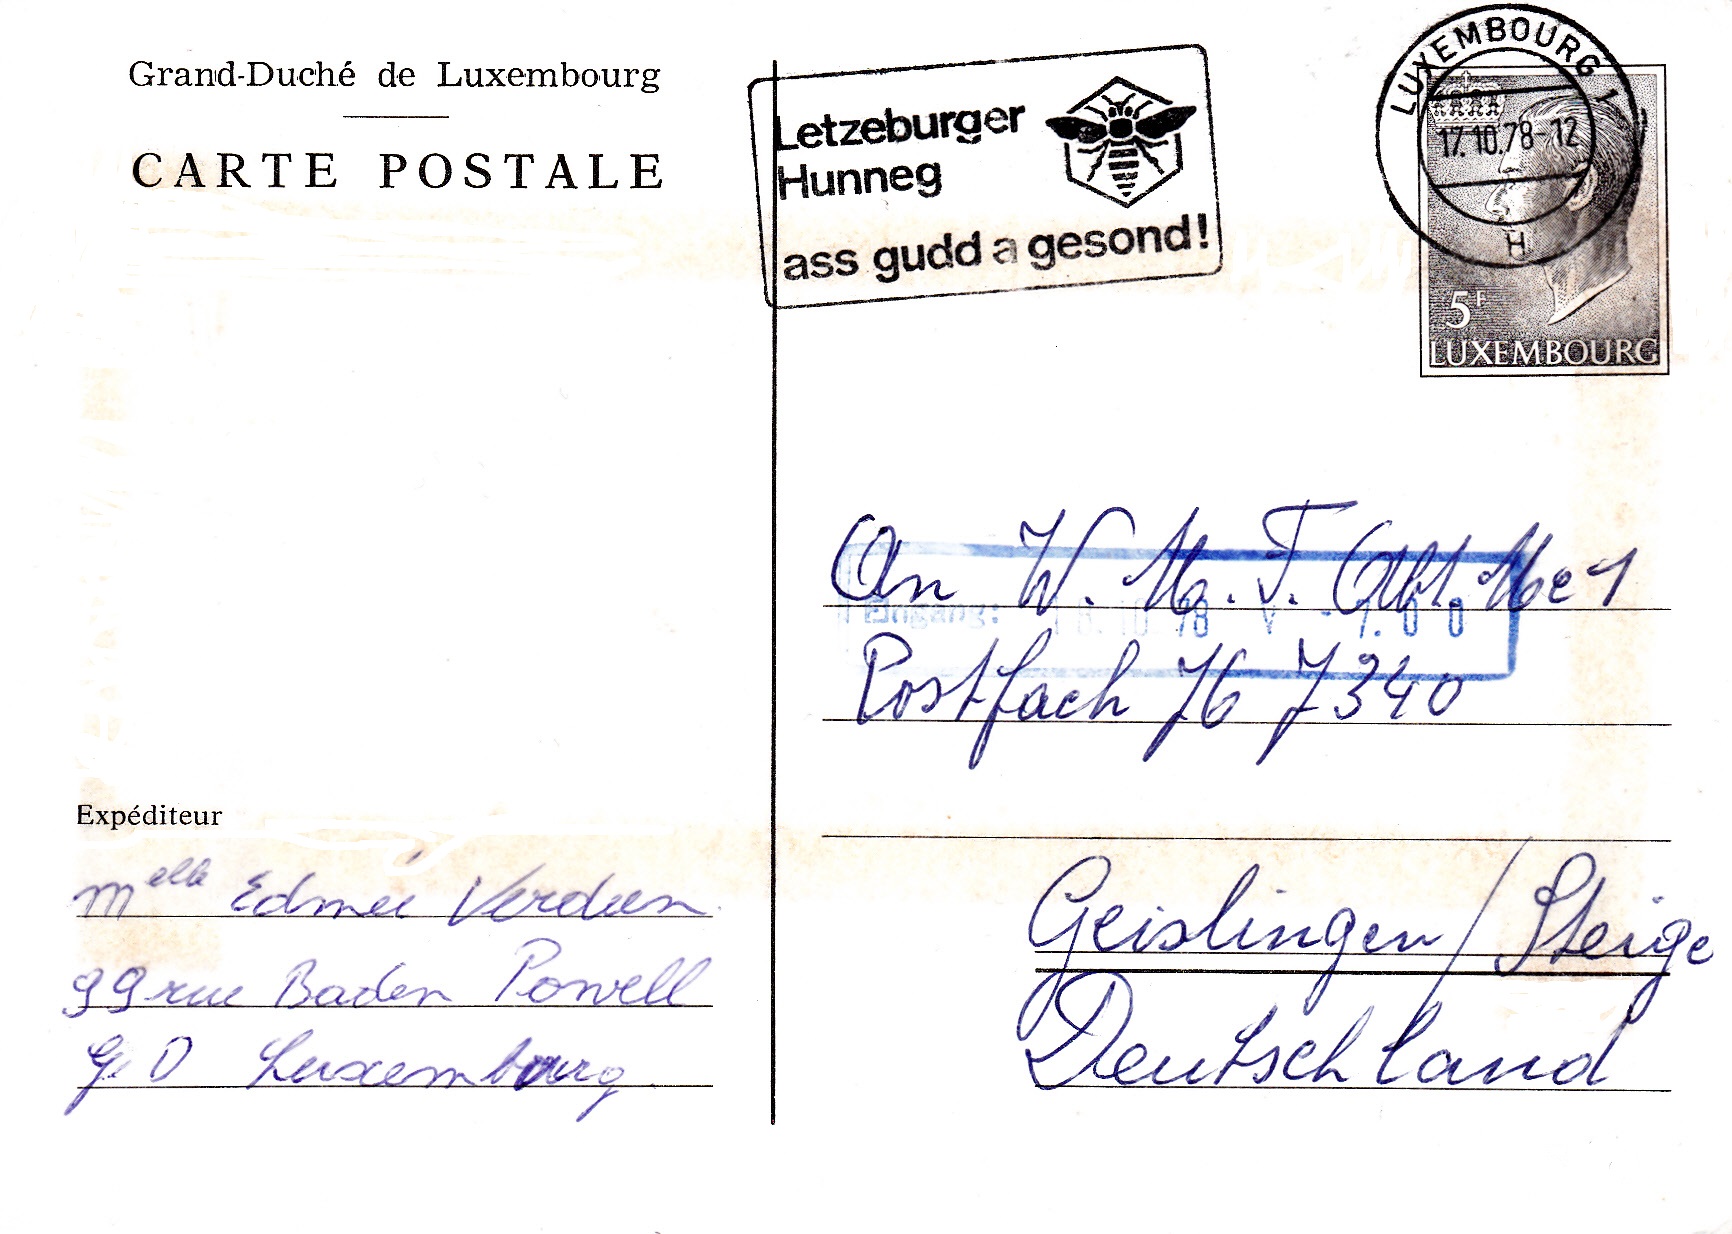 Grand-Duché de Luxembourg
CARTE POSTALE
Letzeburger
Hunneg
ass gudd a gesond!
LUXEMBOURG 1
17.10.78-12
H
5F
LUXEMBOURG
An W. M. F. Abt. Me 1
Eingang: 18.10.78 V -7.00
Postfach 76 7340
Geislingen / Steige
Deutschland
Expéditeur
Melle Edmée
99 rue Baden Powell
G. D Luxembourg